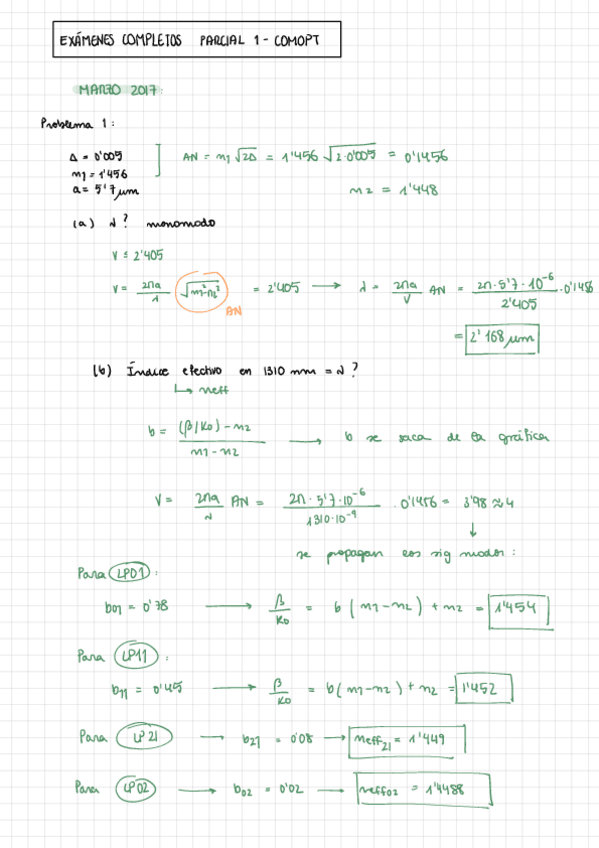 EXÁMENES COMPLETOS PARCIAL 1 - COMOPT
MARZO 2017:
Problema 1:
Δ = 0'005
n1 = 1'456
a = 5'7 μm
AN = n1 √2Δ = 1'456 √2·0'005 = 0'1456
n2 = 1'448
(a) λ? monomodo
V ≤ 2'405
V = 2πa/λ √n1²-n2² = 2'405 → λ = 2πa/V AN = 2π·5'7·10⁻⁶/2'405 ·0'1456
AN
= 2'168 μm
(b) Índice efectivo en 1310 nm = λ?
↳ neff
b = (β/K0) - n2 / n1 - n2 → b se saca de la gráfica
V = 2πa/λ AN = 2π·5'7·10⁻⁶/1310·10⁻⁹ · 0'1456 = 3'98 ≈ 4
↓
se propagan los sig modos:
Para LP01:
b01 = 0'78 → β/K0 = b (n1-n2) + n2 = 1'454
Para LP11:
b11 = 0'45 → β/K0 = b(n1-n2) + n2 = 1'452
Para LP21 → b21 = 0'08 → neff21 = 1'449
Para LP02 → b02 = 0'02 → neff02 = 1'4488